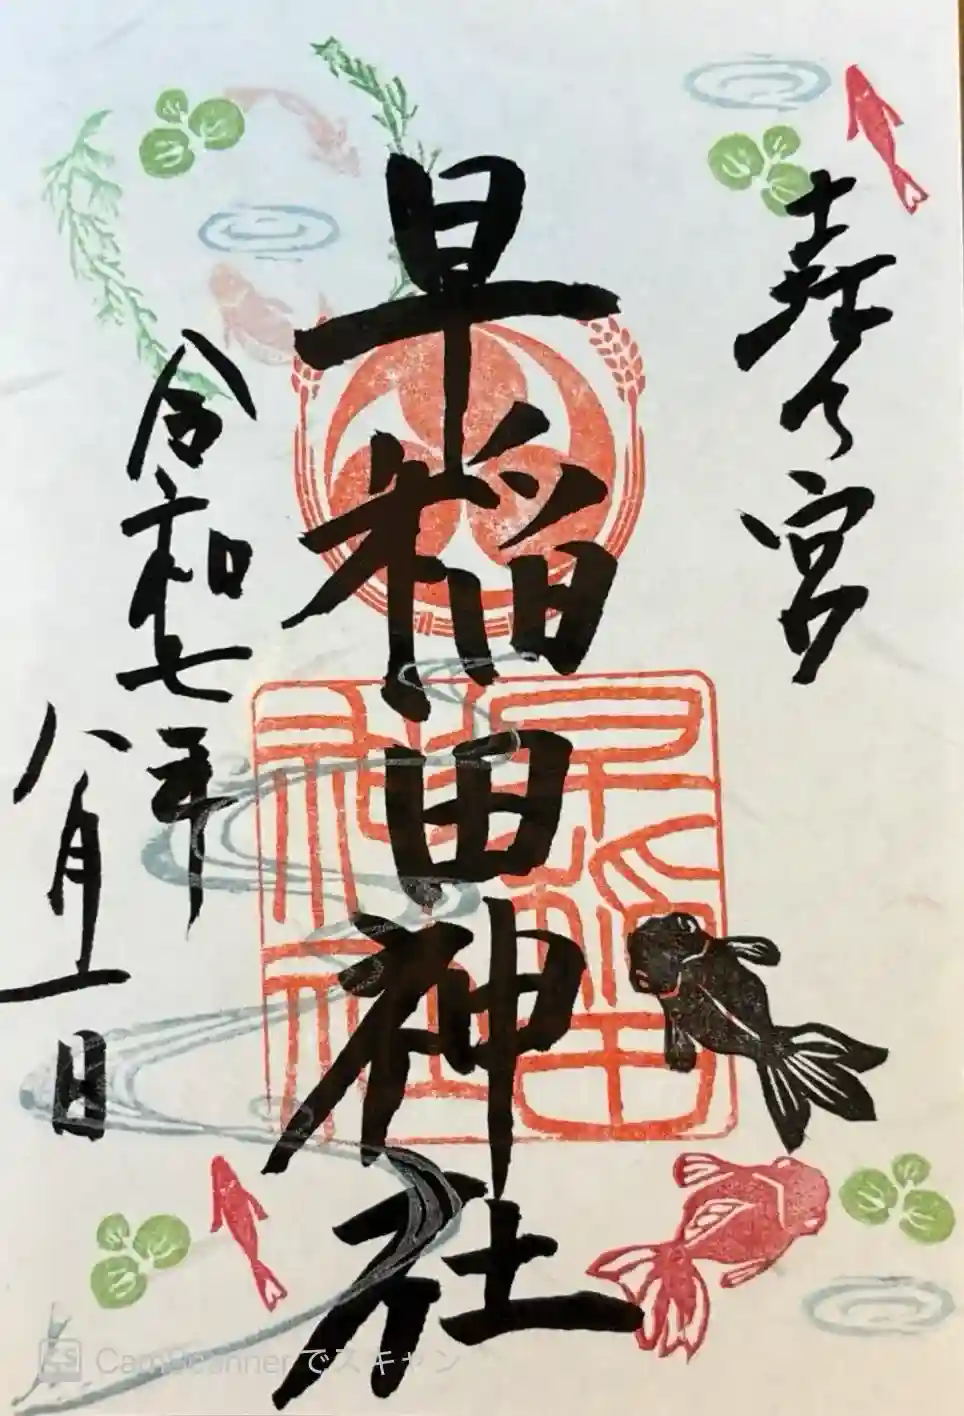 宮
早稲田神社
令和七年
八月一日
早稲田
神社
CS CamScannerでスキャン